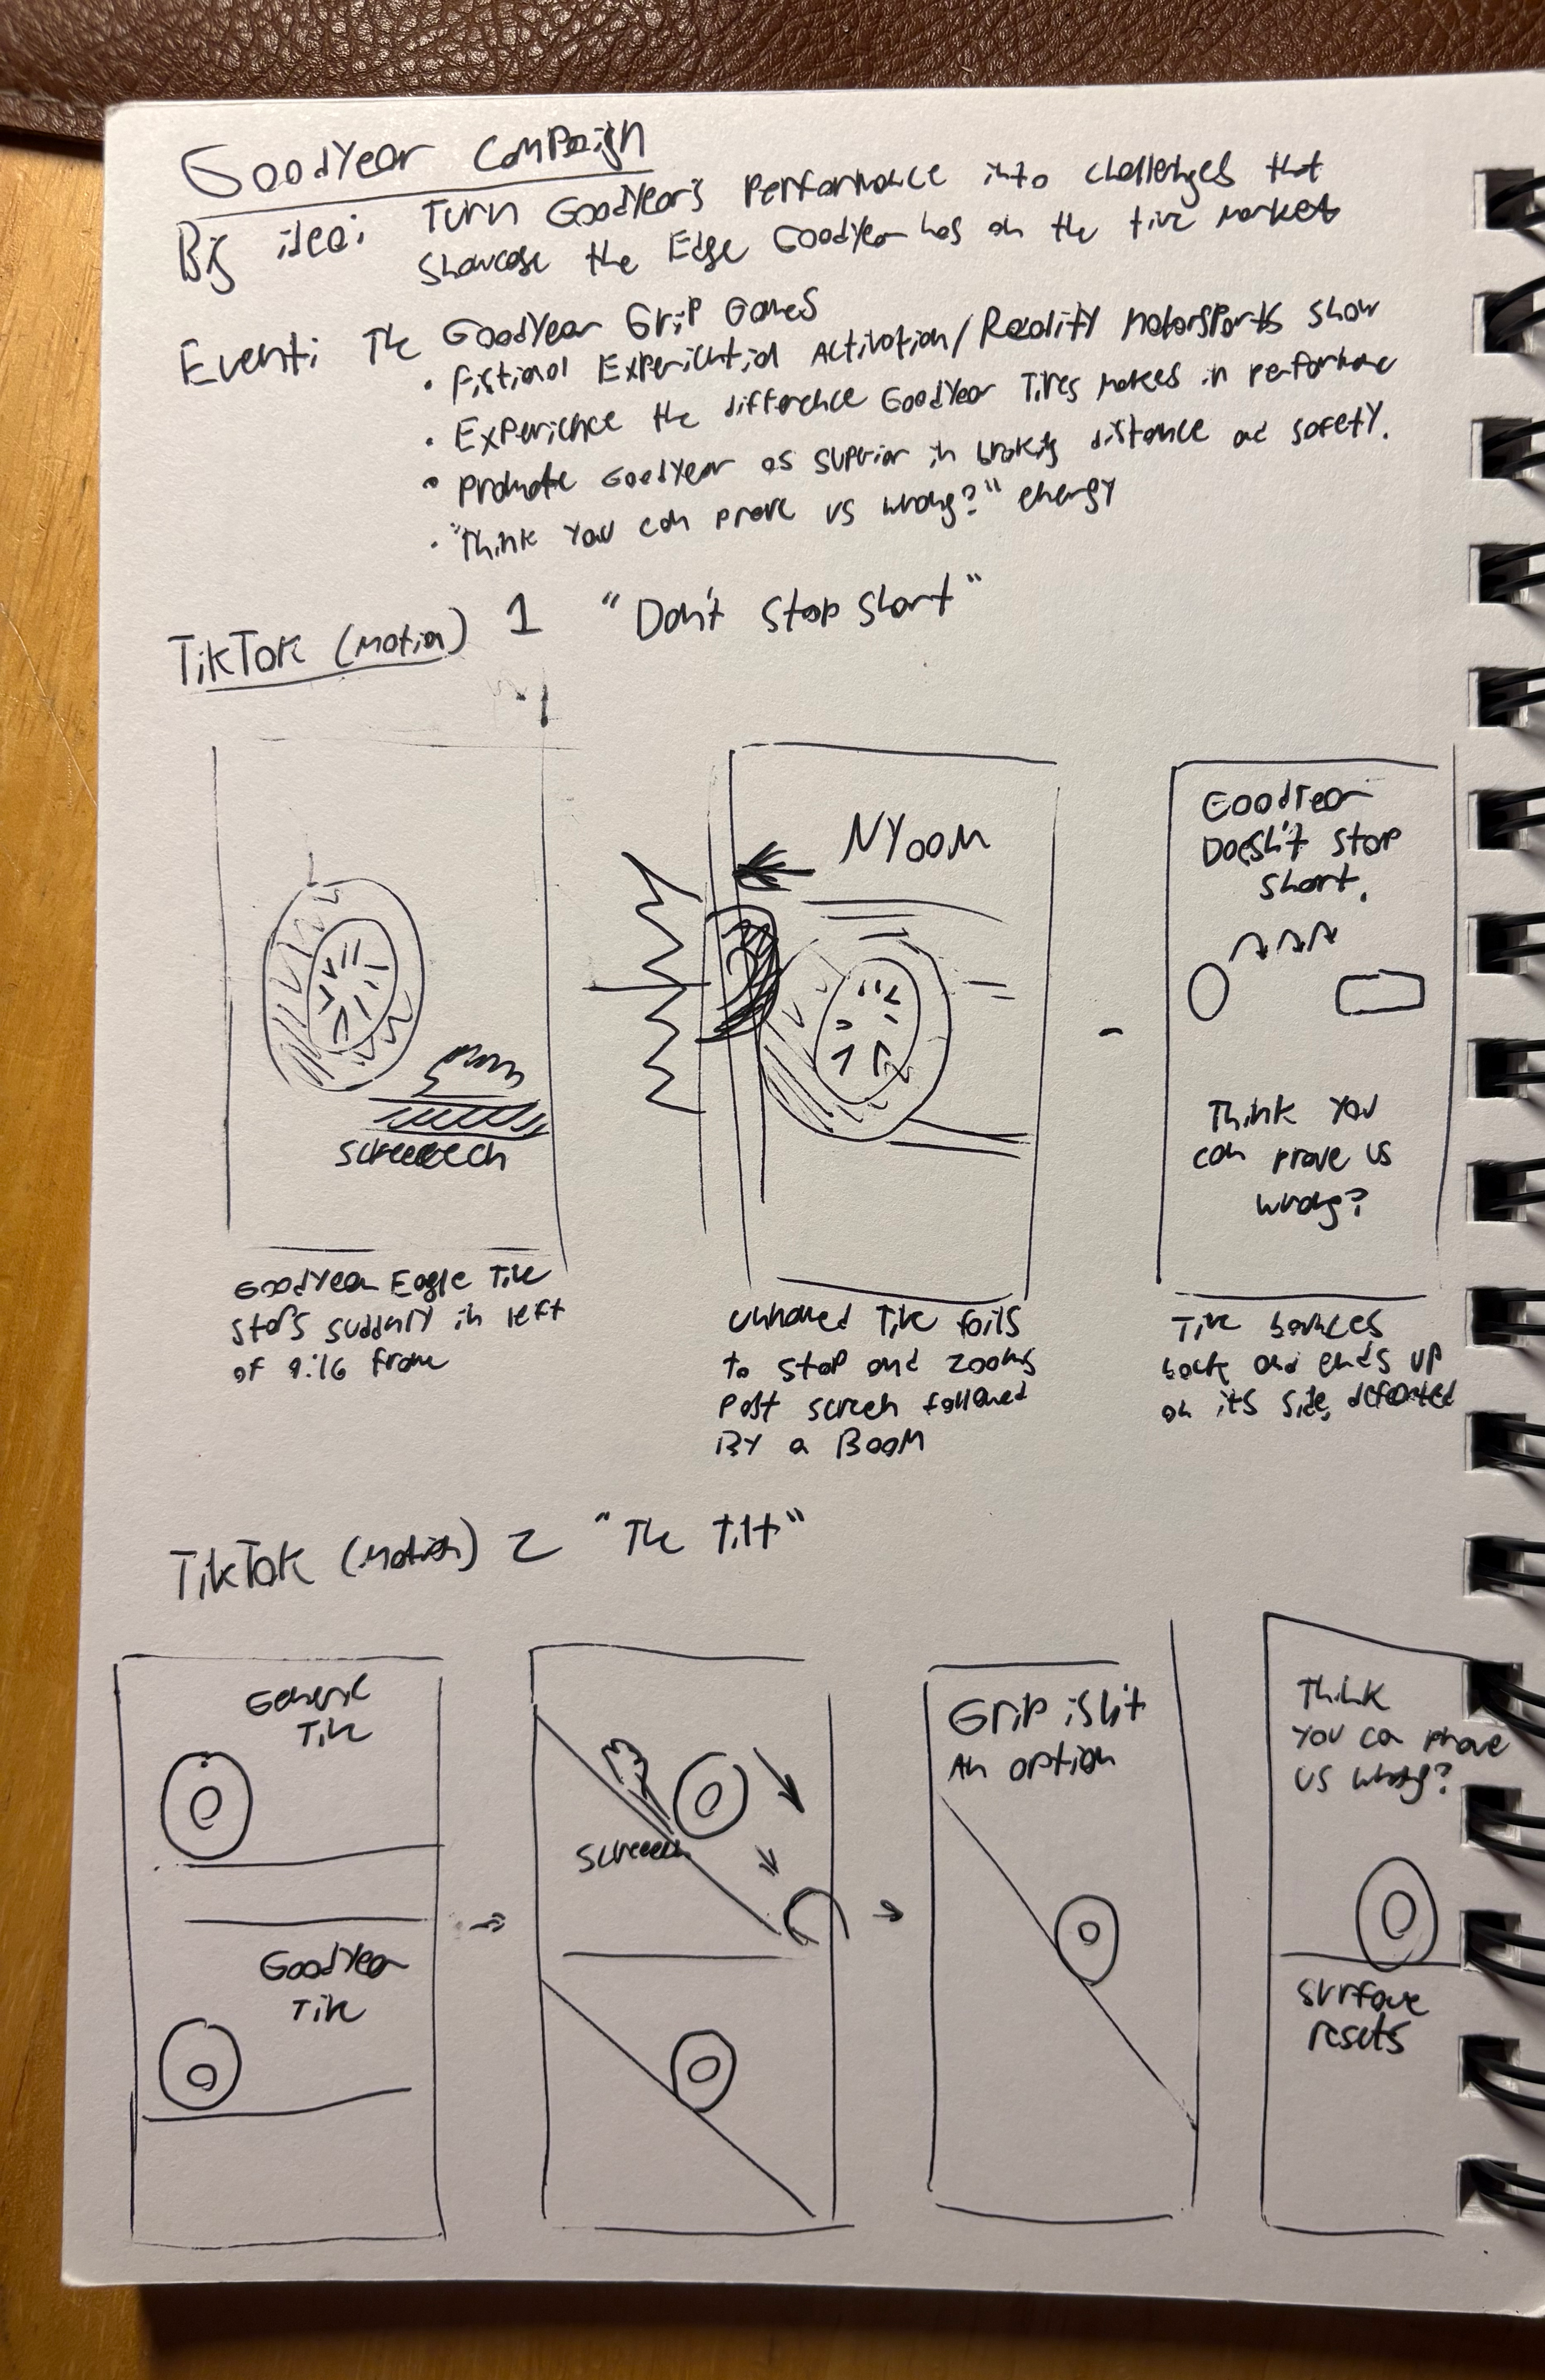 Goodyear Campaign
Big idea: Turn Goodyear's performance into challenges that
showcase the Edge Goodyear has on the tire market
Event: The Goodyear Grip Games
• Fictional Experiential Activation/Reality Motorsports show
• Experience the difference Goodyear Tires makes in performance
• Promote Goodyear as superior in braking distance and safety.
• "Think you can prove us wrong?" energy
TikTok (motion) 1 "Don't Stop Short"
NYOOM
Goodyear
Doesn't stop
short.
screeeech
Think you
can prove us
wrong?
Goodyear Eagle Tire
stops suddenly in left
of 9:16 frame
unnamed Tire fails
to stop and zooms
past screen followed
By a BOOM
Tire bounces
back and ends up
on its side, defeated
TikTok (motion) 2 "The Tilt"
Generic
Tire
Goodyear
Tire
Screeech
Grip isn't
An option
Think
you can prove
us wrong?
Surface
resets